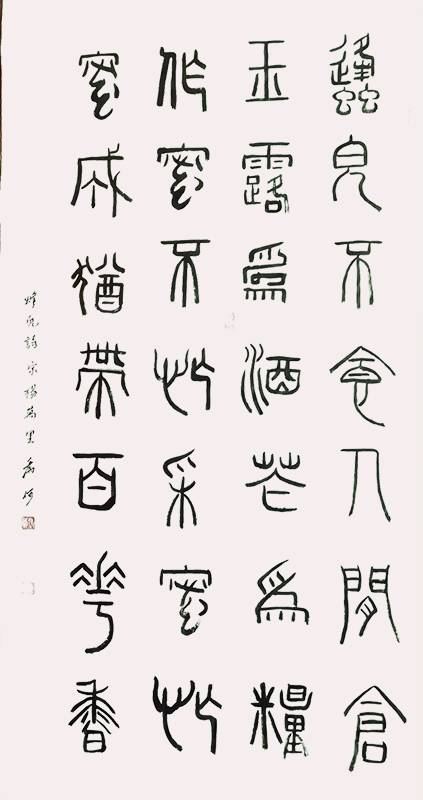 蠭兒不食人間倉
玉露爲酒花爲糧
作蜜不忙采蜜忙
蜜成猶帶百華香
蜂兒詩宋楊萬里